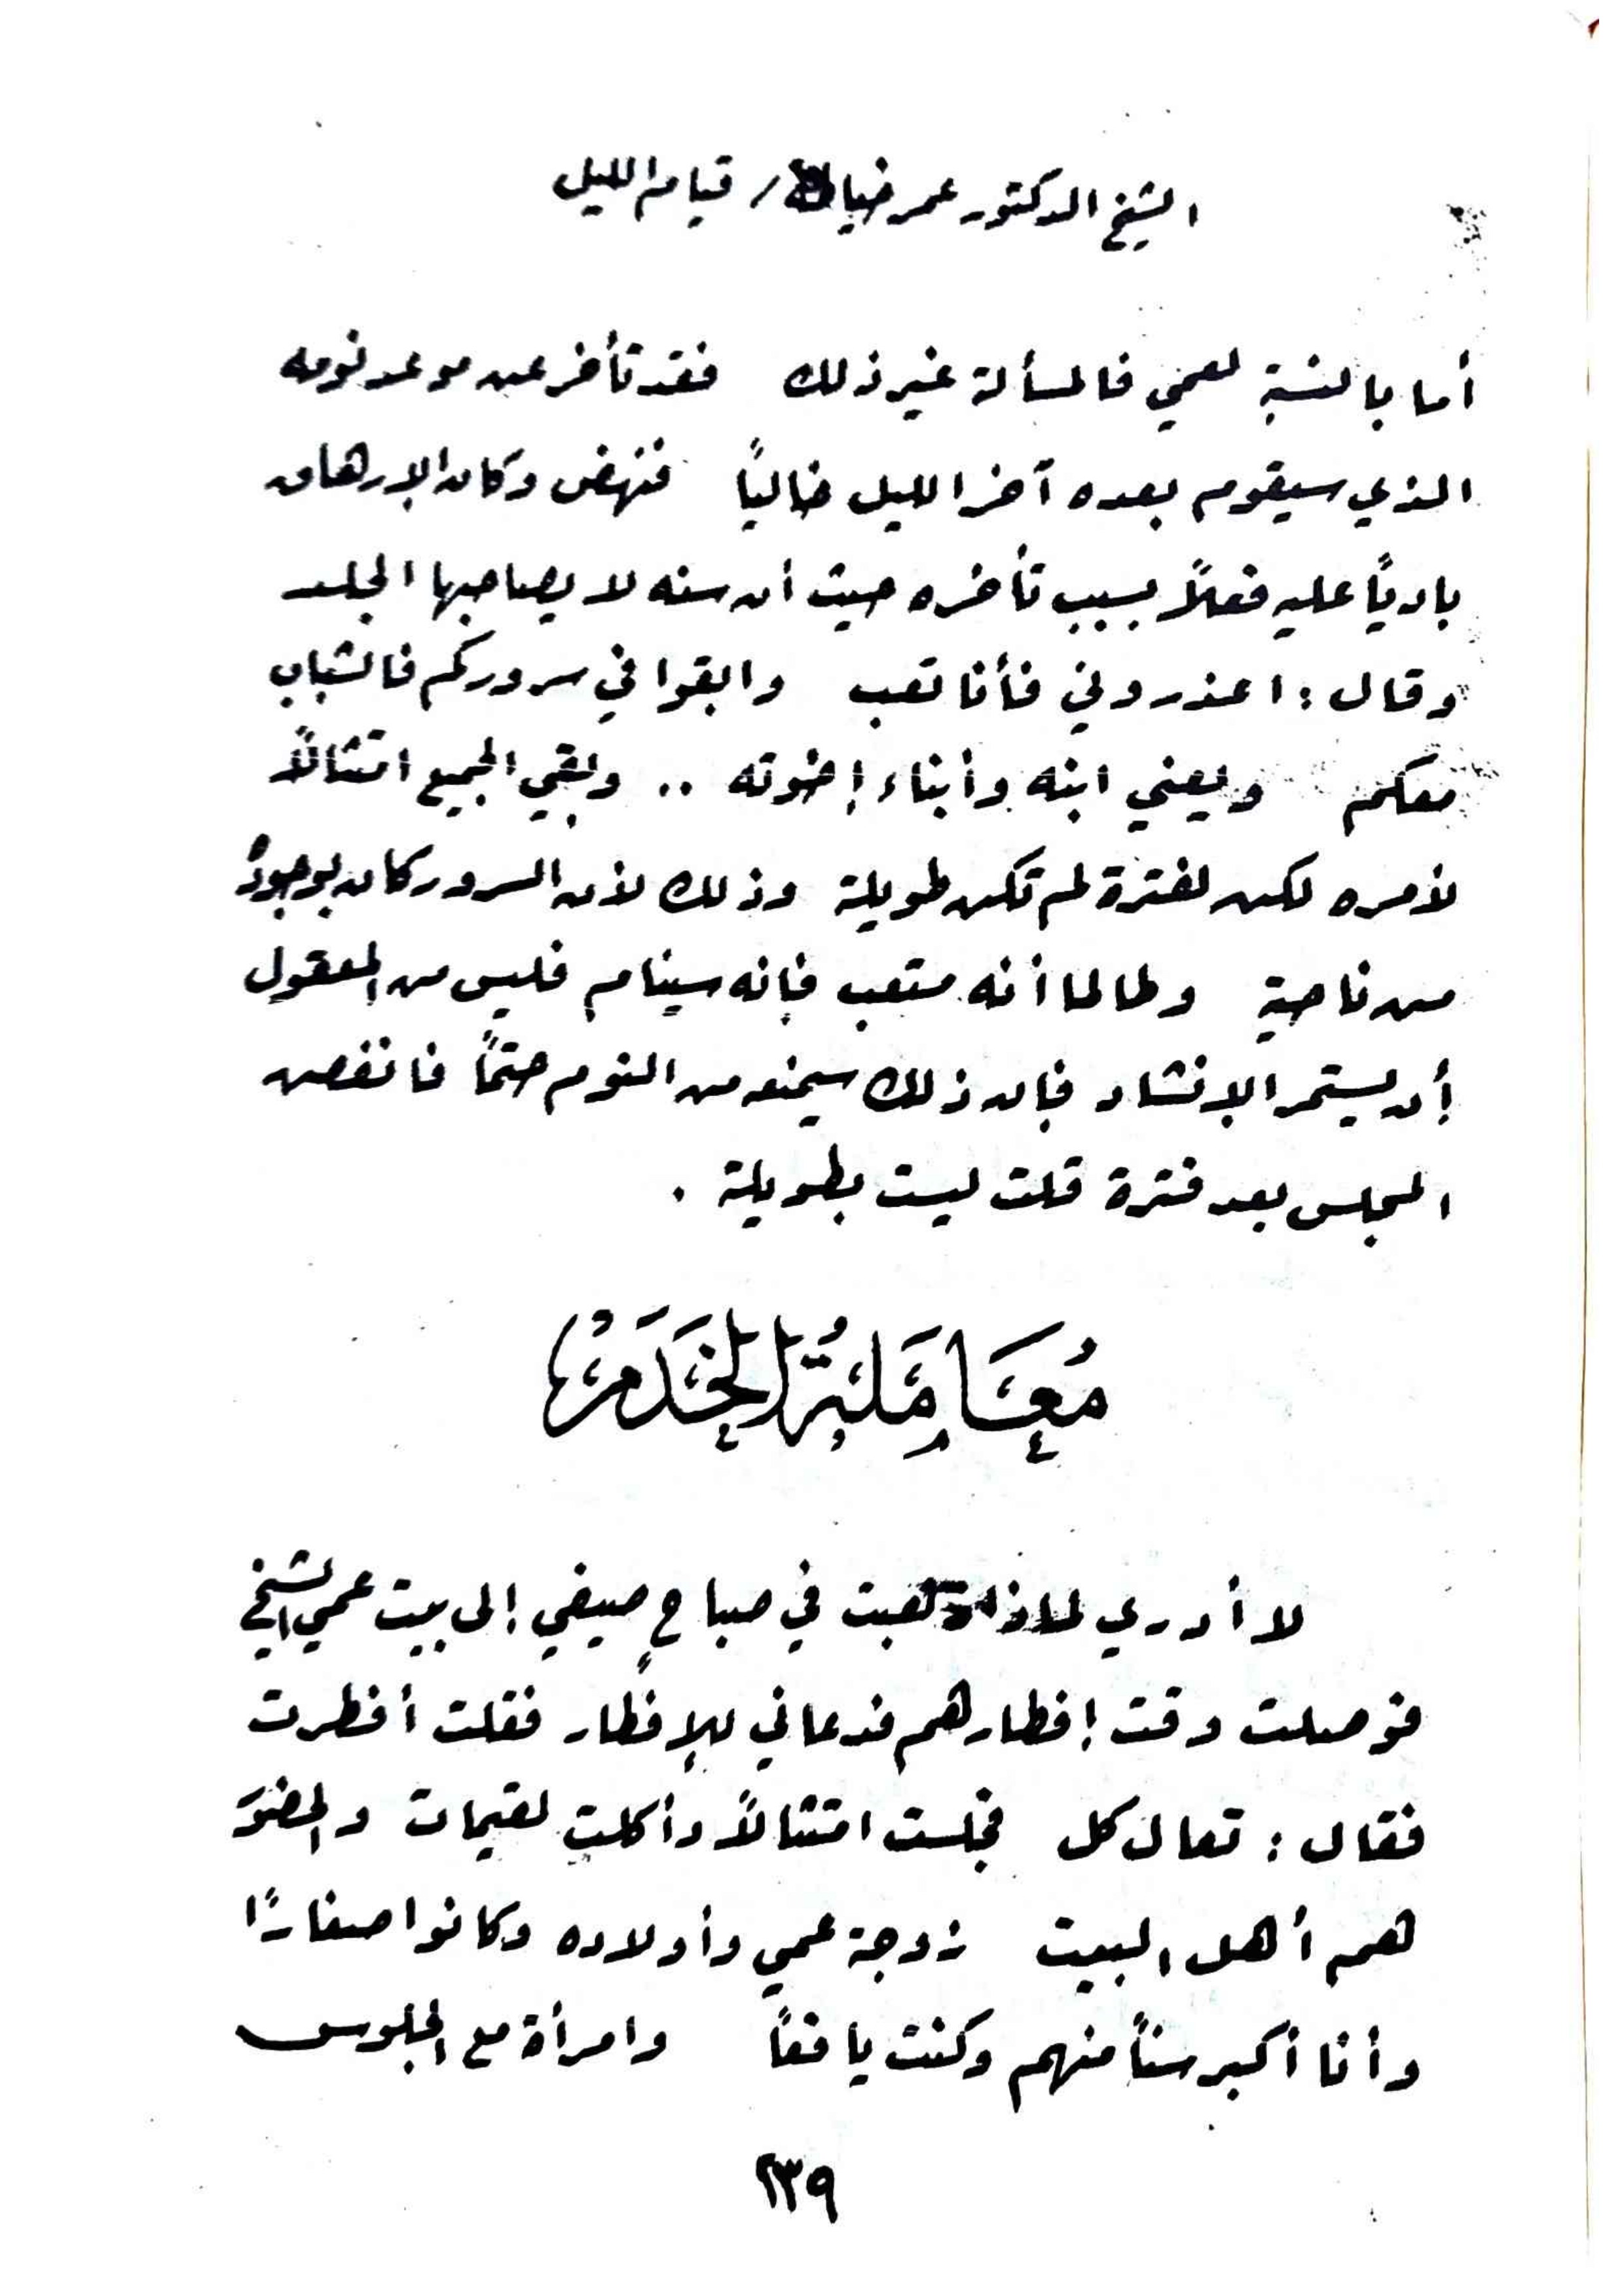 الشيخ الدكتور عمر خياطة / قيام الليل
أما بالنسبة لعمي فالمسألة غير ذلك فقد تأخر عن موعد نومه
الذي سيقوم بعده آخر الليل غالباً فنهض وكان الإرهاق
بادياً عليه فعلاً بسبب تأخره حيث أن سنه لا يصاحبها الجلد
وقال : اعذروني فأنا تعب وابقوا في سروركم فالشباب
معكم ويعني ابنه وأبناء إخوته .. وبقي الجميع امتثالاً
لأمره لكن لفترة لم تكن طويلة وذلك لأن السرور كان بوجوده
من ناحية وطالما أنه متعب فإنه سينام فليس من المعقول
أن يستمر الإنشاد فإن ذلك سيمنعه من النوم حتماً فانفض
المجلس بعد فترة قلت ليست بطويلة .
مُعَامَلَةُ الخَدَمْ
لا أدري لماذا ذهبت في صباحٍ صيفي إلى بيت عمي الشيخ
فوصلت وقت إفطارهم فدعاني للإفطار فقلت أفطرت
فقال : تعال كل فجلست امتثالاً وأكلت لقيمات والحضور
هم أهل البيت زوجة عمي وأولاده وكانوا صغارًا
وأنا أكبر سناً منهم وكنت يافعاً وامرأة مع الجلوس
٢٣٩